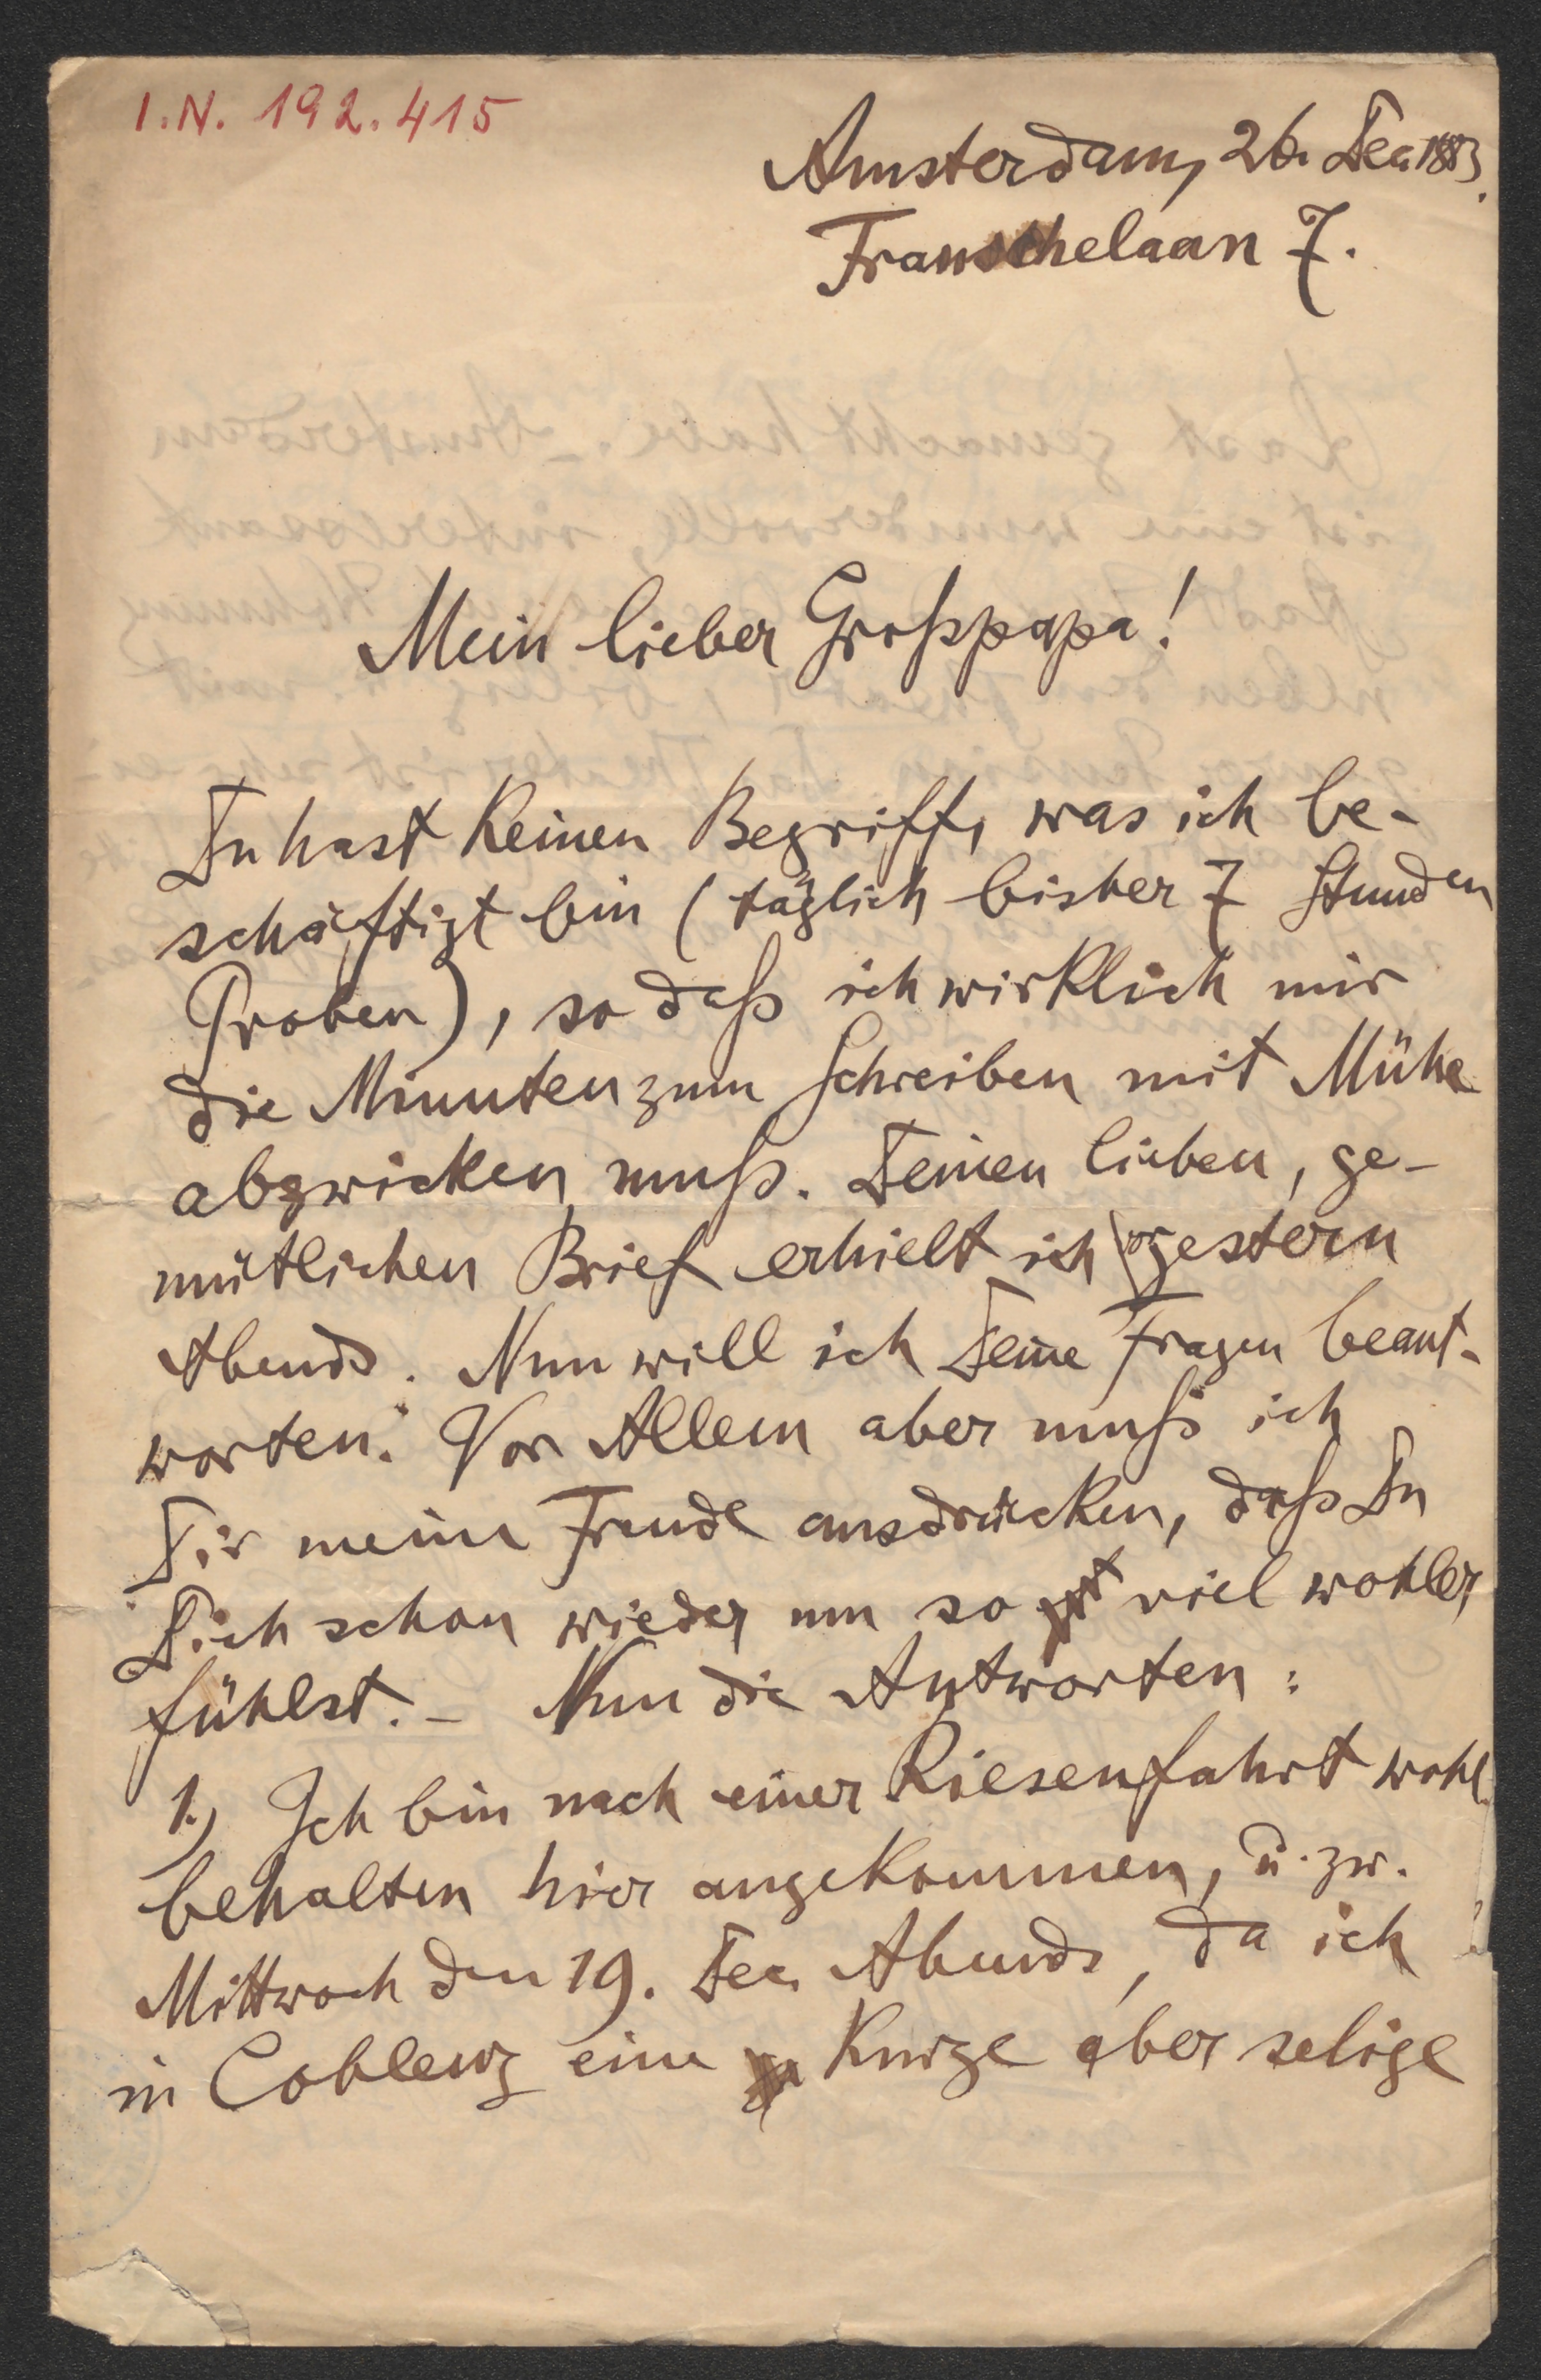 I.N. 192.415
Amsterdam, 26. Dec. 1883.
Franschelaan 7.
Mein lieber Großpapa!
Du hast keinen Begriff, was ich be-
schäftigt bin (täglich bisher 7 Stunden
Proben), so daß ich wirklich mir
die Minuten zum Schreiben mit Mühe
abzwicken muß. Deinen lieben, ge-
mütlichen Brief erhielt ich vorgestern
Abends. Nun will ich Deine Fragen beant-
worten. Vor Allem aber muß ich
Dir meine Freude ausdrücken, daß Du
Dich schon wieder um so viel wohler
fühlst. – Nun die Antworten:
1.) Ich bin nach einer Riesenfahrt wohl
behalten hier angekommen, u. zw.
Mittwoch den 19. Dec. Abends, da ich
in Coblenz eine kurze aber selige